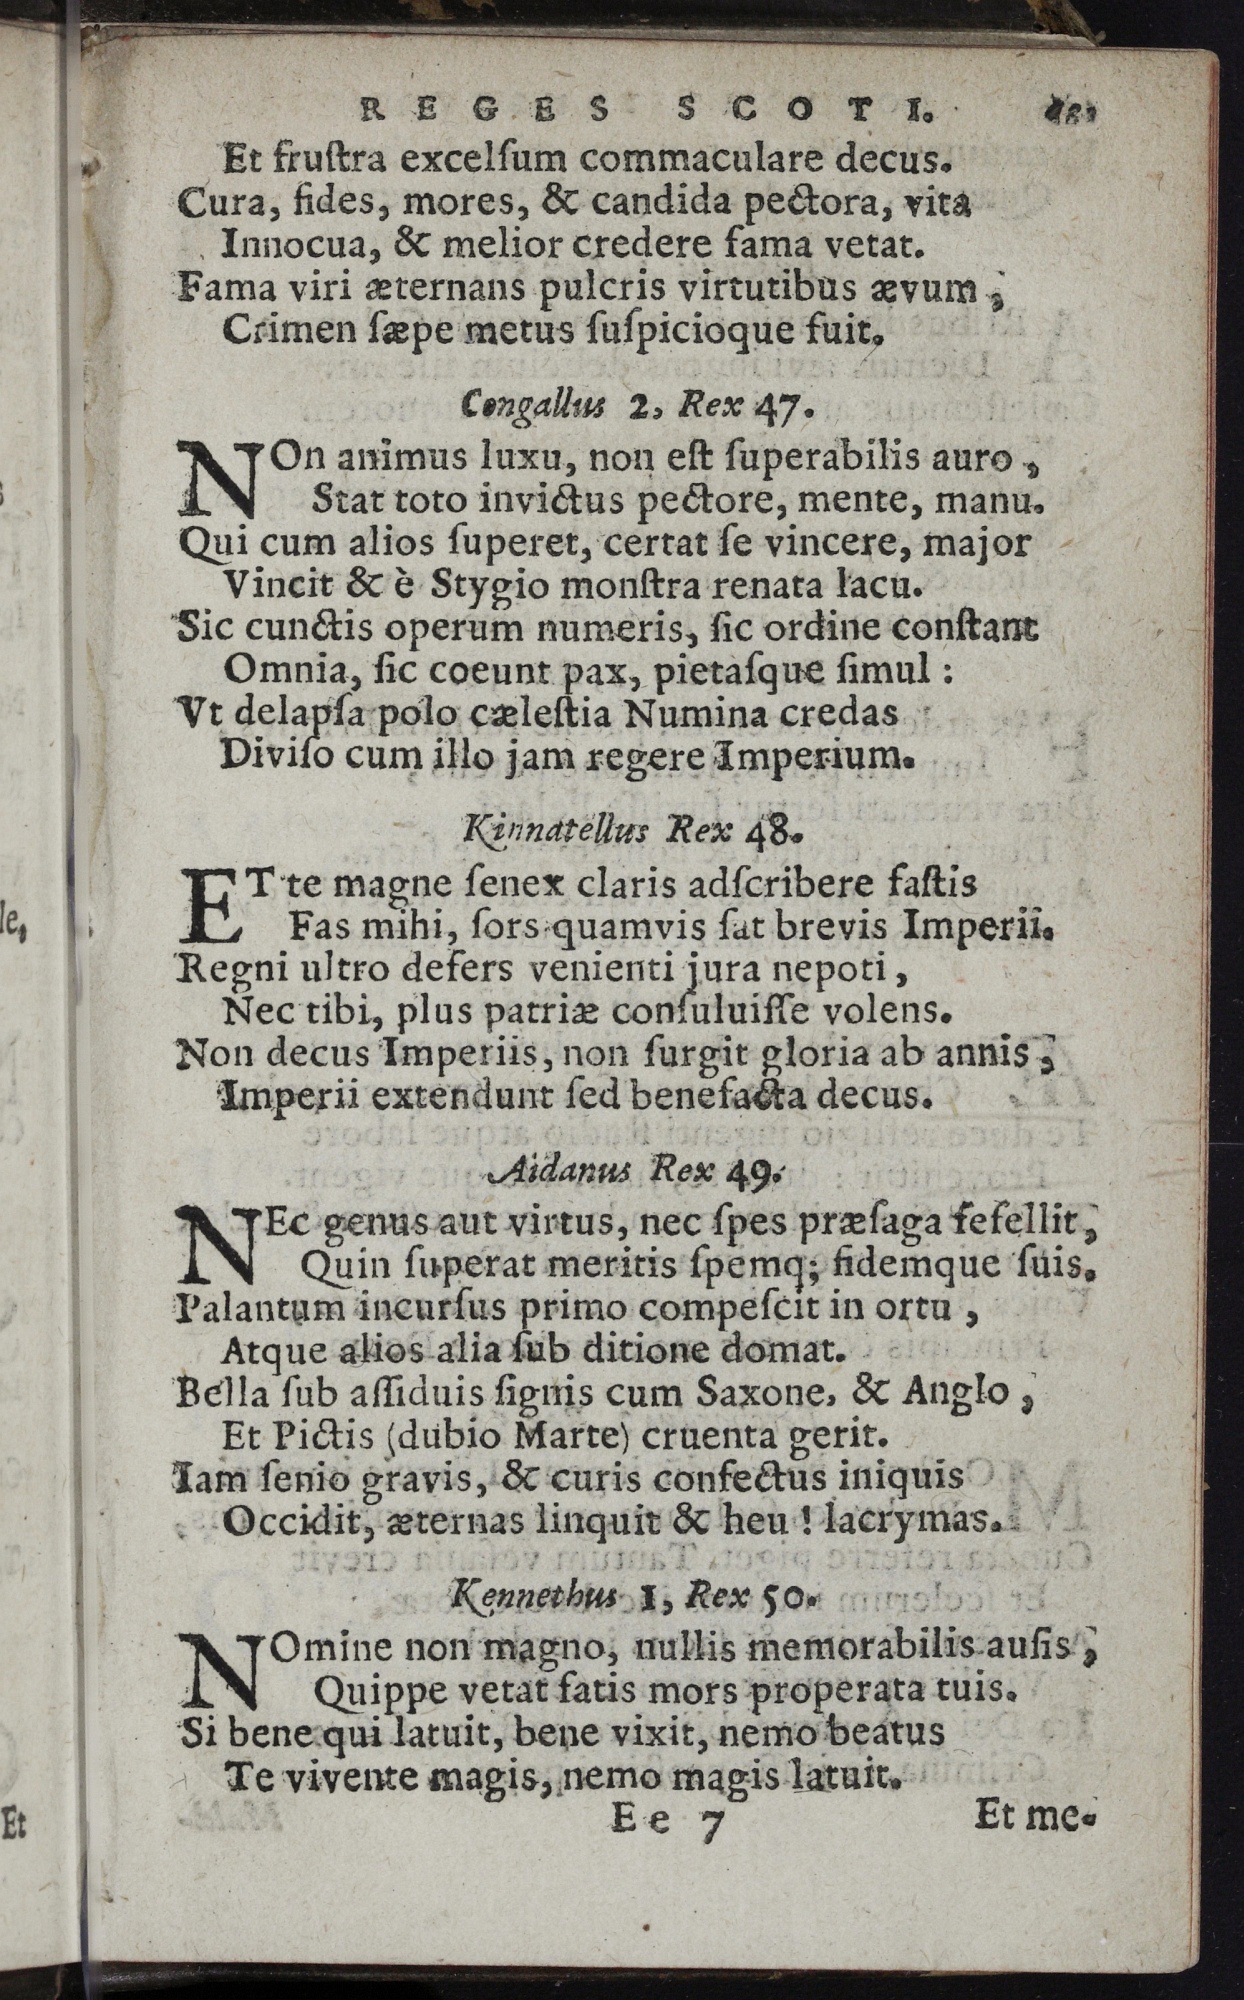 REGES SCOTI.
Et fruſtra excelſum commaculare decus.
Cura, fides, mores, & candida pectora, vita
Innocua, & melior credere fama vetat.
Fama viri æternans pulcris virtutibus ævum,
Crimen ſæpe metus ſuſpicioque fuit.
Congallus 2, Rex 47.
NOn animus luxu, non eſt ſuperabilis auro,
Stat toto invictus pectore, mente, manu.
Qui cum alios ſuperet, certat ſe vincere, major
Vincit & è Stygio monſtra renata lacu.
Sic cunctis operum numeris, ſic ordine conſtant
Omnia, ſic coeunt pax, pietaſque ſimul:
Vt delapſa polo cæleſtia Numina credas
Diviſo cum illo jam regere Imperium.
Kinnatellus Rex 48.
ET te magne ſenex claris adſcribere faſtis
Fas mihi, ſors quamvis ſat brevis Imperii.
Regni ultro defers venienti jura nepoti,
Nec tibi, plus patriæ conſuluiſſe volens.
Non decus Imperiis, non ſurgit gloria ab annis,
Imperii extendunt ſed benefacta decus.
Aidanus Rex 49.
NEc genus aut virtus, nec ſpes præſaga fefellit,
Quin ſuperat meritis ſpemq; fidemque ſuis.
Palantum incurſus primo compeſcit in ortu,
Atque alios alia ſub ditione domat.
Bella ſub aſſiduis ſignis cum Saxone, & Anglo,
Et Pictis (dubio Marte) cruenta gerit.
Iam ſenio gravis, & curis confectus iniquis
Occidit, æternas linquit & heu! lacrymas.
Kennethus 1, Rex 50.
NOmine non magno, nullis memorabilis auſis,
Quippe vetat fatis mors properata tuis.
Si bene qui latuit, bene vixit, nemo beatus
Te vivente magis, nemo magis latuit.
Ee 7 Et me-
le,
Et